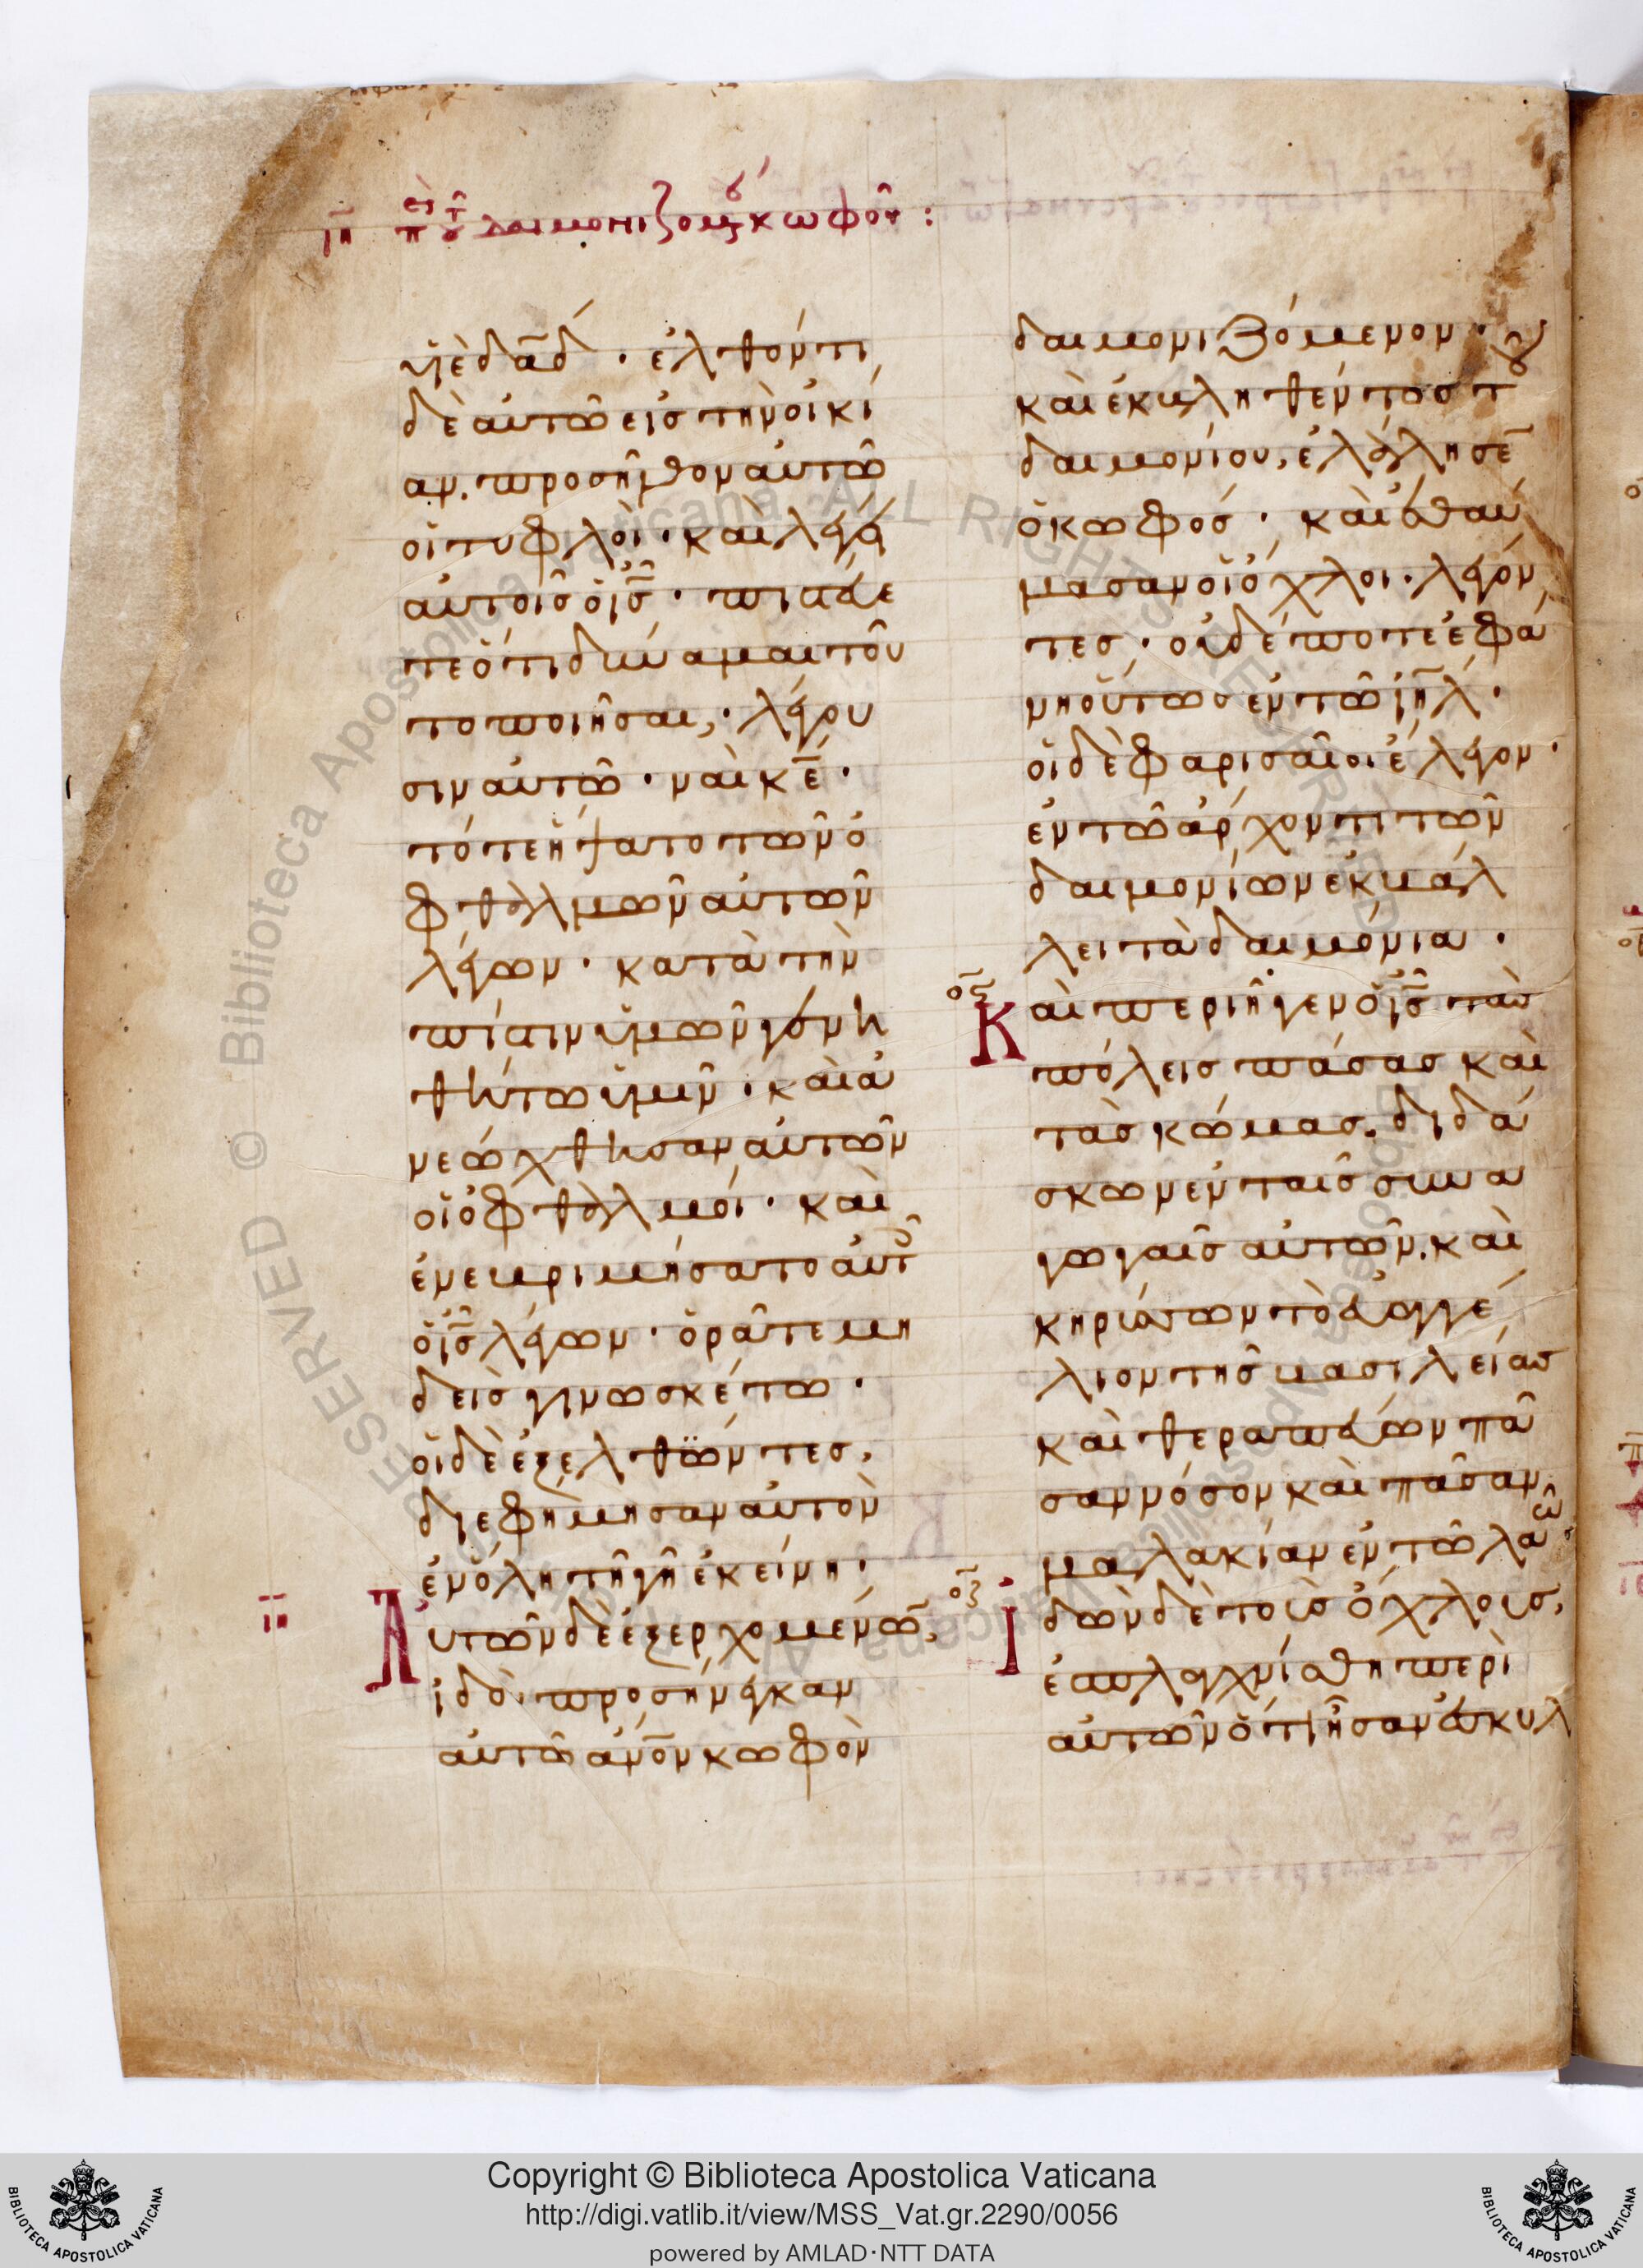 ιη περὶ τοῦ δαιμονιζομένου κωφοῦ :
υἱὲ δᾱδ · ἐλθόντι
δὲ αὐτῶ εἰς τὴν οἰκί
αν. προσῆλθον αὐτῶ
οἱ τυφλοὶ · καὶ λέγει
αὐτοῖς ὁ ις̄ · πιστεύε
τε ὅτι δύναμαι τοῦ
το ποιῆσαι, · λέγου
σιν αὐτῶ · ναὶ κε̄ ·
τότε ἥψατο τῶν ὀ
φθαλμῶν αὐτῶν
λέγων · κατὰ τὴν
πίστιν ὑμῶν γενη
θήτω ὑμῖν · καὶ ἀ
νεώχθησαν αὐτῶν
οἱ ὀφθαλμοί · καὶ
ἐνεβριμήσατο αὐτοῖς
ὁ ις̄ λέγων · ὁρᾶτε μη
δεὶς γινωσκέτω ·
οἱ δὲ ἐξελθῶντες,
διεφήμησαν αὐτὸν
ἐν ὅλη τῆ γῆ ἐκείνη ·
Αὐτῶν δὲ ἐξερχομένων,
ἰδοὺ προσήνεγκαν
αὐτῶ ἀνον κωφὸν
δαιμονιζόμενον ·
καὶ ἐκβληθέντος τοῦ
δαιμονίου, ἐλάλησεν
ὁ κωφός · καὶ ἐθαύ
μασαν οἱ ὄχλοι · λέγον
τες · οὐδέποτε ἐφά
νη οὕτως ἐν τῶ ιηλ̄ ·
οἱ δὲ φαρισαῖοι ἔλεγον ·
ἐν τῶ ἄρχοντι τῶν
δαιμονίων ἐκβάλ
λει τὰ δαιμόνια ·
Καὶ περιῆγεν ὁ ις̄ τὰς
πόλεις πάσας καὶ
τὰς κώμας. διδά
σκων ἐν ταῖς συνα
γωγαῖς αὐτῶν. καὶ
κηρύσσων τὸ εὐαγγέ
λιον τῆς βασιλείας
καὶ θεραπεύων πᾶ
σαν νόσον καὶ πᾶσαν
μαλακίαν ἐν τῶ λαῶ
Ἰδὼν δὲ τοὺς ὄχλους,
ἐσπλαγχνίσθη περὶ
αὐτῶν ὅτι ἦσαν ἐσκυλ
Copyright © Biblioteca Apostolica Vaticana
http://digi.vatlib.it/view/MSS_Vat.gr.2290/0056
powered by AMLAD·NTT DATA